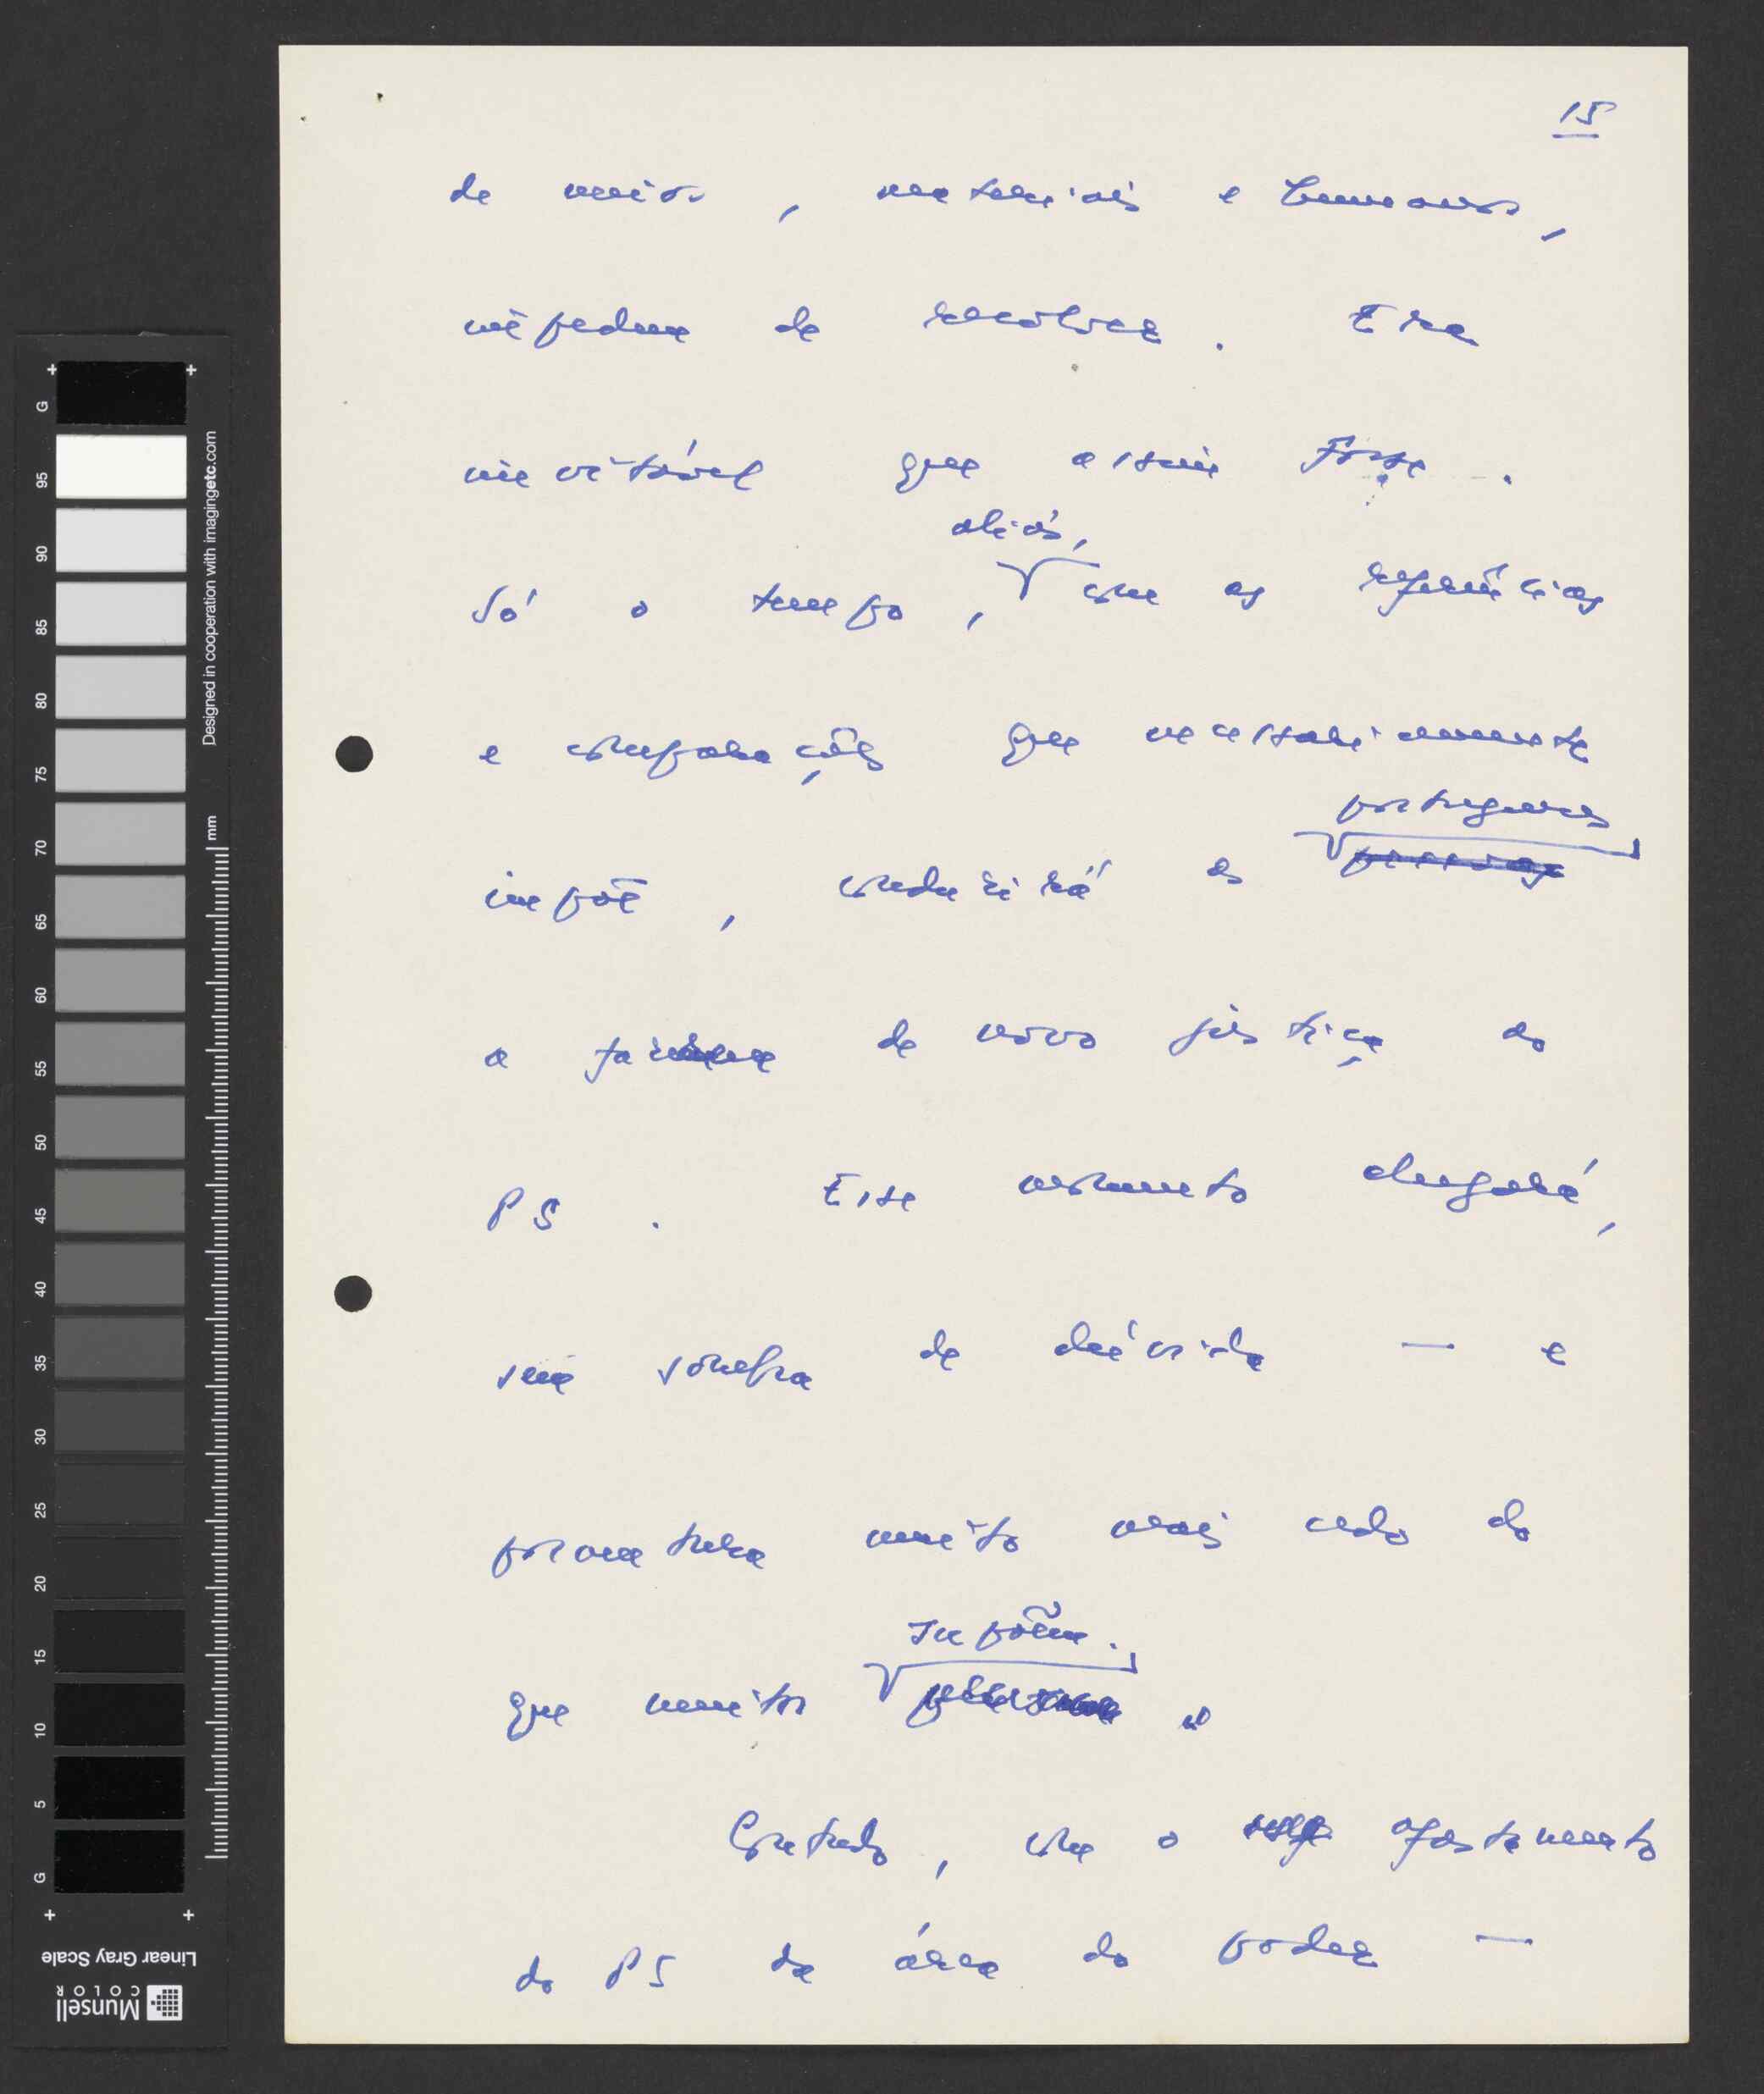 15
de meios, materiais e humanos,
impediu de resolver. Era
inevitável que assim fosse.
aliás,
Só o tempo, com as experiências
e comparações que necessariamente
portugueses
impõe, conduzirá os pessoas
a fazerem de novo justiça ao
PS. Esse momento chegará,
sem sombra de dúvida — e
porventura muito mais cedo do
supõem.
que muitos
Contudo, com o afastamento
do PS da área do poder —
G
95
90
85
80
75
70
65
60
55
50
45
40
35
30
25
20
15
10
5
G
Designed in cooperation with imagingetc.com
mm
Linear Gray Scale
Munsell
COLOR